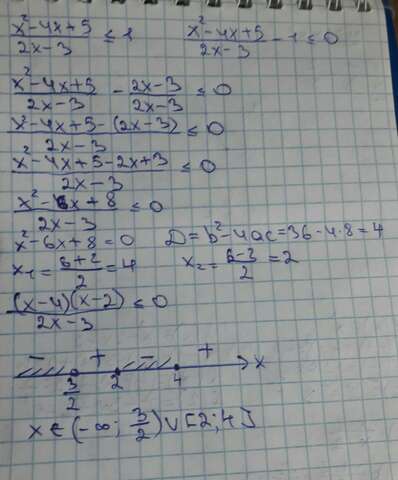 (x²-4x+5)/(2x-3) ≤ 1    (x²-4x+5)/(2x-3) - 1 ≤ 0
(x²-4x+5)/(2x-3) - (2x-3)/(2x-3) ≤ 0
(x²-4x+5-(2x-3))/(2x-3) ≤ 0
(x²-4x+5-2x+3)/(2x-3) ≤ 0
(x²-6x+8)/(2x-3) ≤ 0
x²-6x+8=0    D=b²-4ac=36-4·8=4
x₁=(6+2)/2=4    x₂=(6-2)/2=2
((x-4)(x-2))/(2x-3) ≤ 0
- + - +
3/2 2 4 x
x ∈ (-∞; 3/2) ∪ [2; 4]